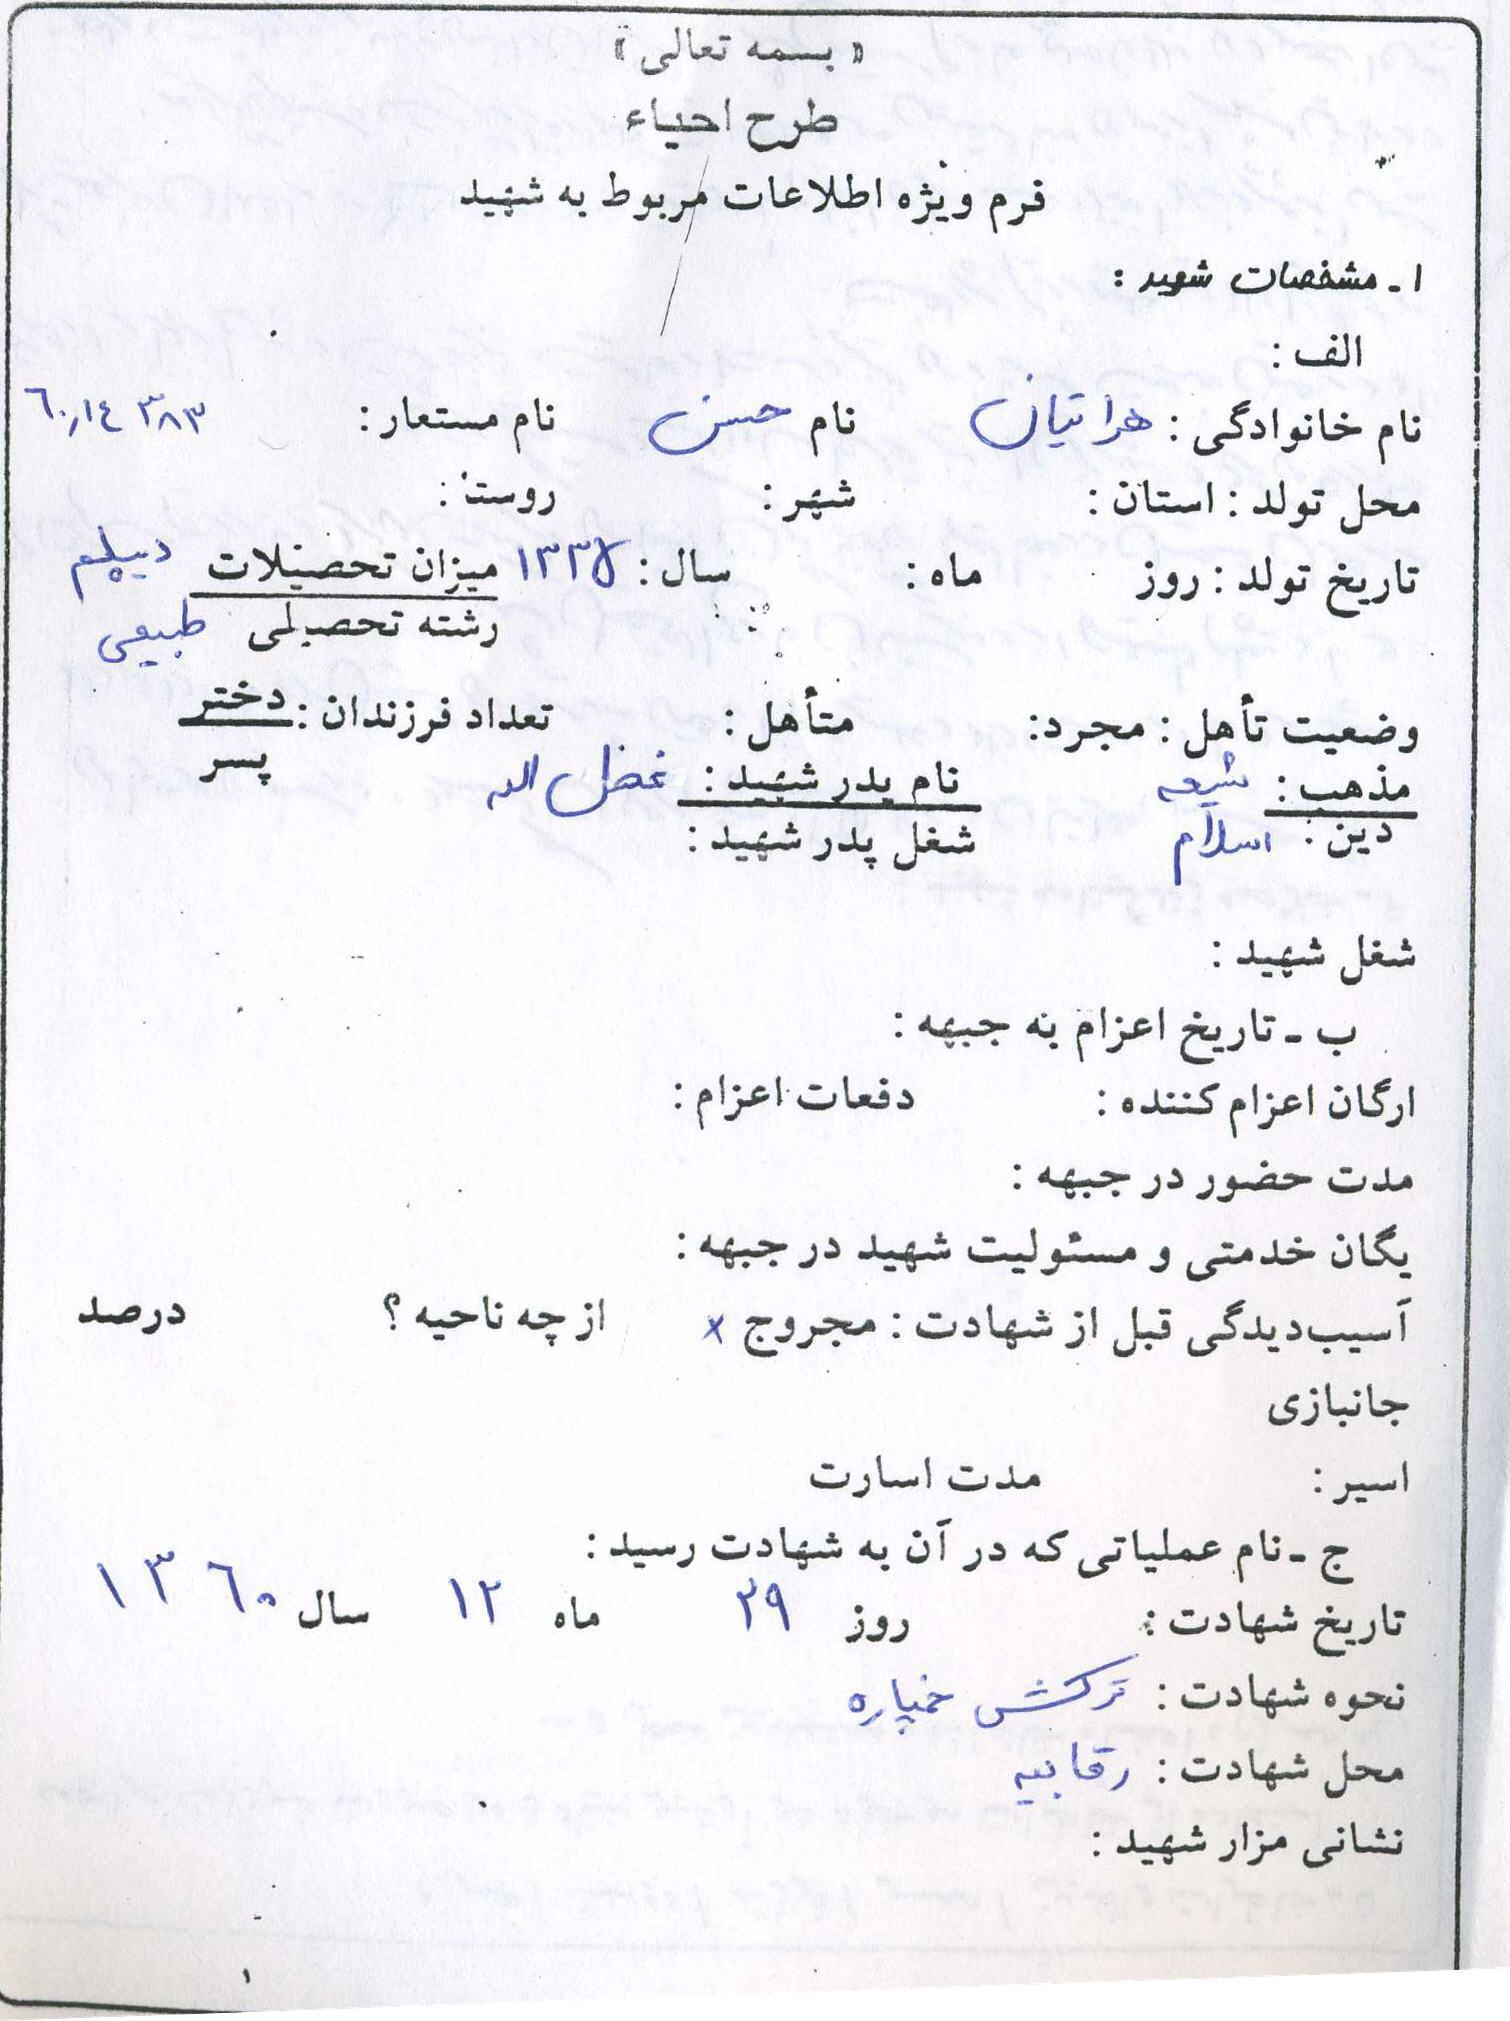 « بسمه تعالی »
طرح احیاء
فرم ویژه اطلاعات مربوط به شهید
۱ ـ مشخصات شهید :
الف :
نام خانوادگی : هراتیان نام حسن نام مستعار :
محل تولد : استان : شهر : روستا :
تاریخ تولد : روز ماه : سال : میزان تحصیلات دیپلم
رشته تحصیلی طبیعی
وضعیت تأهل : مجرد: متأهل : تعداد فرزندان : دختر
پسر
مذهب : شیعه نام پدر شهید : فضل اله
دین : اسلام شغل پدر شهید :
شغل شهید :
ب ـ تاریخ اعزام به جبهه :
ارگان اعزام کننده : دفعات اعزام :
مدت حضور در جبهه :
یگان خدمتی و مسئولیت شهید در جبهه :
آسیب‌دیدگی قبل از شهادت : مجروح x از چه ناحیه ؟ درصد
جانبازی
اسیر : مدت اسارت
ج ـ نام عملیاتی که در آن به شهادت رسید :
تاریخ شهادت : روز ۲۹ ماه ۱۲ سال ۱۳۶۰
نحوه شهادت : ترکش خمپاره
محل شهادت : رقابیه
نشانی مزار شهید :
۱